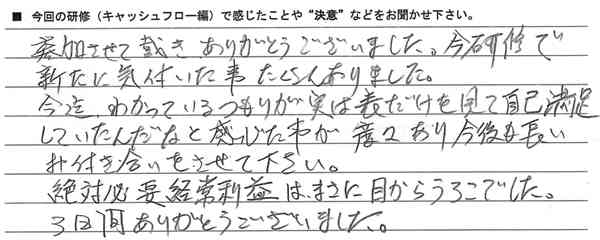 ■ 今回の研修（キャッシュフロー編）で感じたことや“決意”などをお聞かせ下さい。
参加させて戴きありがとうございました。今研修で
新たに気付いた事たくさんありました。
今迄、わかっているつもりが実は表だけを見て自己満足
していたんだなと感じた事が度々あり今後も長い
お付き合いをさせて下さい。
絶対必要経常利益は、まさに目からうろこでした。
3日間ありがとうございました。